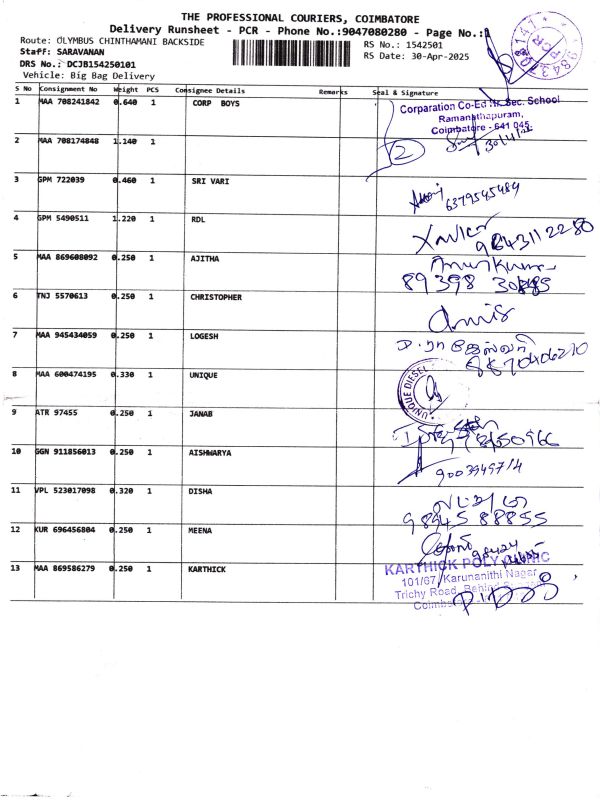 THE PROFESSIONAL COURIERS, COIMBATORE
Delivery Runsheet - PCR - Phone No.:9047080280 - Page No.:1
Route: OLYMBUS CHINTHAMANI BACKSIDE
RS No.: 1542501
Staff: SARAVANAN
RS Date: 30-Apr-2025
DRS No.: DCJB154250101
Vehicle: Big Bag Delivery
S No Consignment No Weight PCS Consignee Details Remarks Seal & Signature
1 MAA 708241842 0.640 1 CORP BOYS
Corparation Co-Ed Hr. Sec. School
Ramanathapuram,
Coimbatore - 641 045.
2 MAA 708174848 1.140 1
2
3 GPM 722039 0.460 1 SRI VARI
6379545484
4 GPM 5490511 1.220 1 RDL
9843112280
5 MAA 869608092 0.250 1 AJITHA
Arunkumar
89398
6 TNJ 5570613 0.250 1 CHRISTOPHER
7 MAA 945434059 0.250 1 LOGESH
8870406210
8 MAA 600474195 0.330 1 UNIQUE
UNIQUE DIESEL
9 ATR 97455 0.250 1 JANAB
10 GGN 911856013 0.250 1 AISHWARYA
11 VPL 523017098 0.320 1 DISHA
98945 88855
12 KUR 696456804 0.250 1 MEENA
13 MAA 869586279 0.250 1 KARTHICK
KARTHICK POLYCLINIC
101/67, Karunanithi Nagar
Trichy Road, Behind